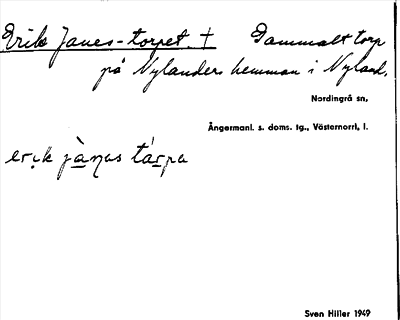 Erik Janes-torpet. † Gammalt torp
på Nylanders hemman i Nyland.
Nordingrå sn,
Ångermanl. s. doms. tg., Västernorrl, l.
erik jànas tárpa
Sven Hiller 1949